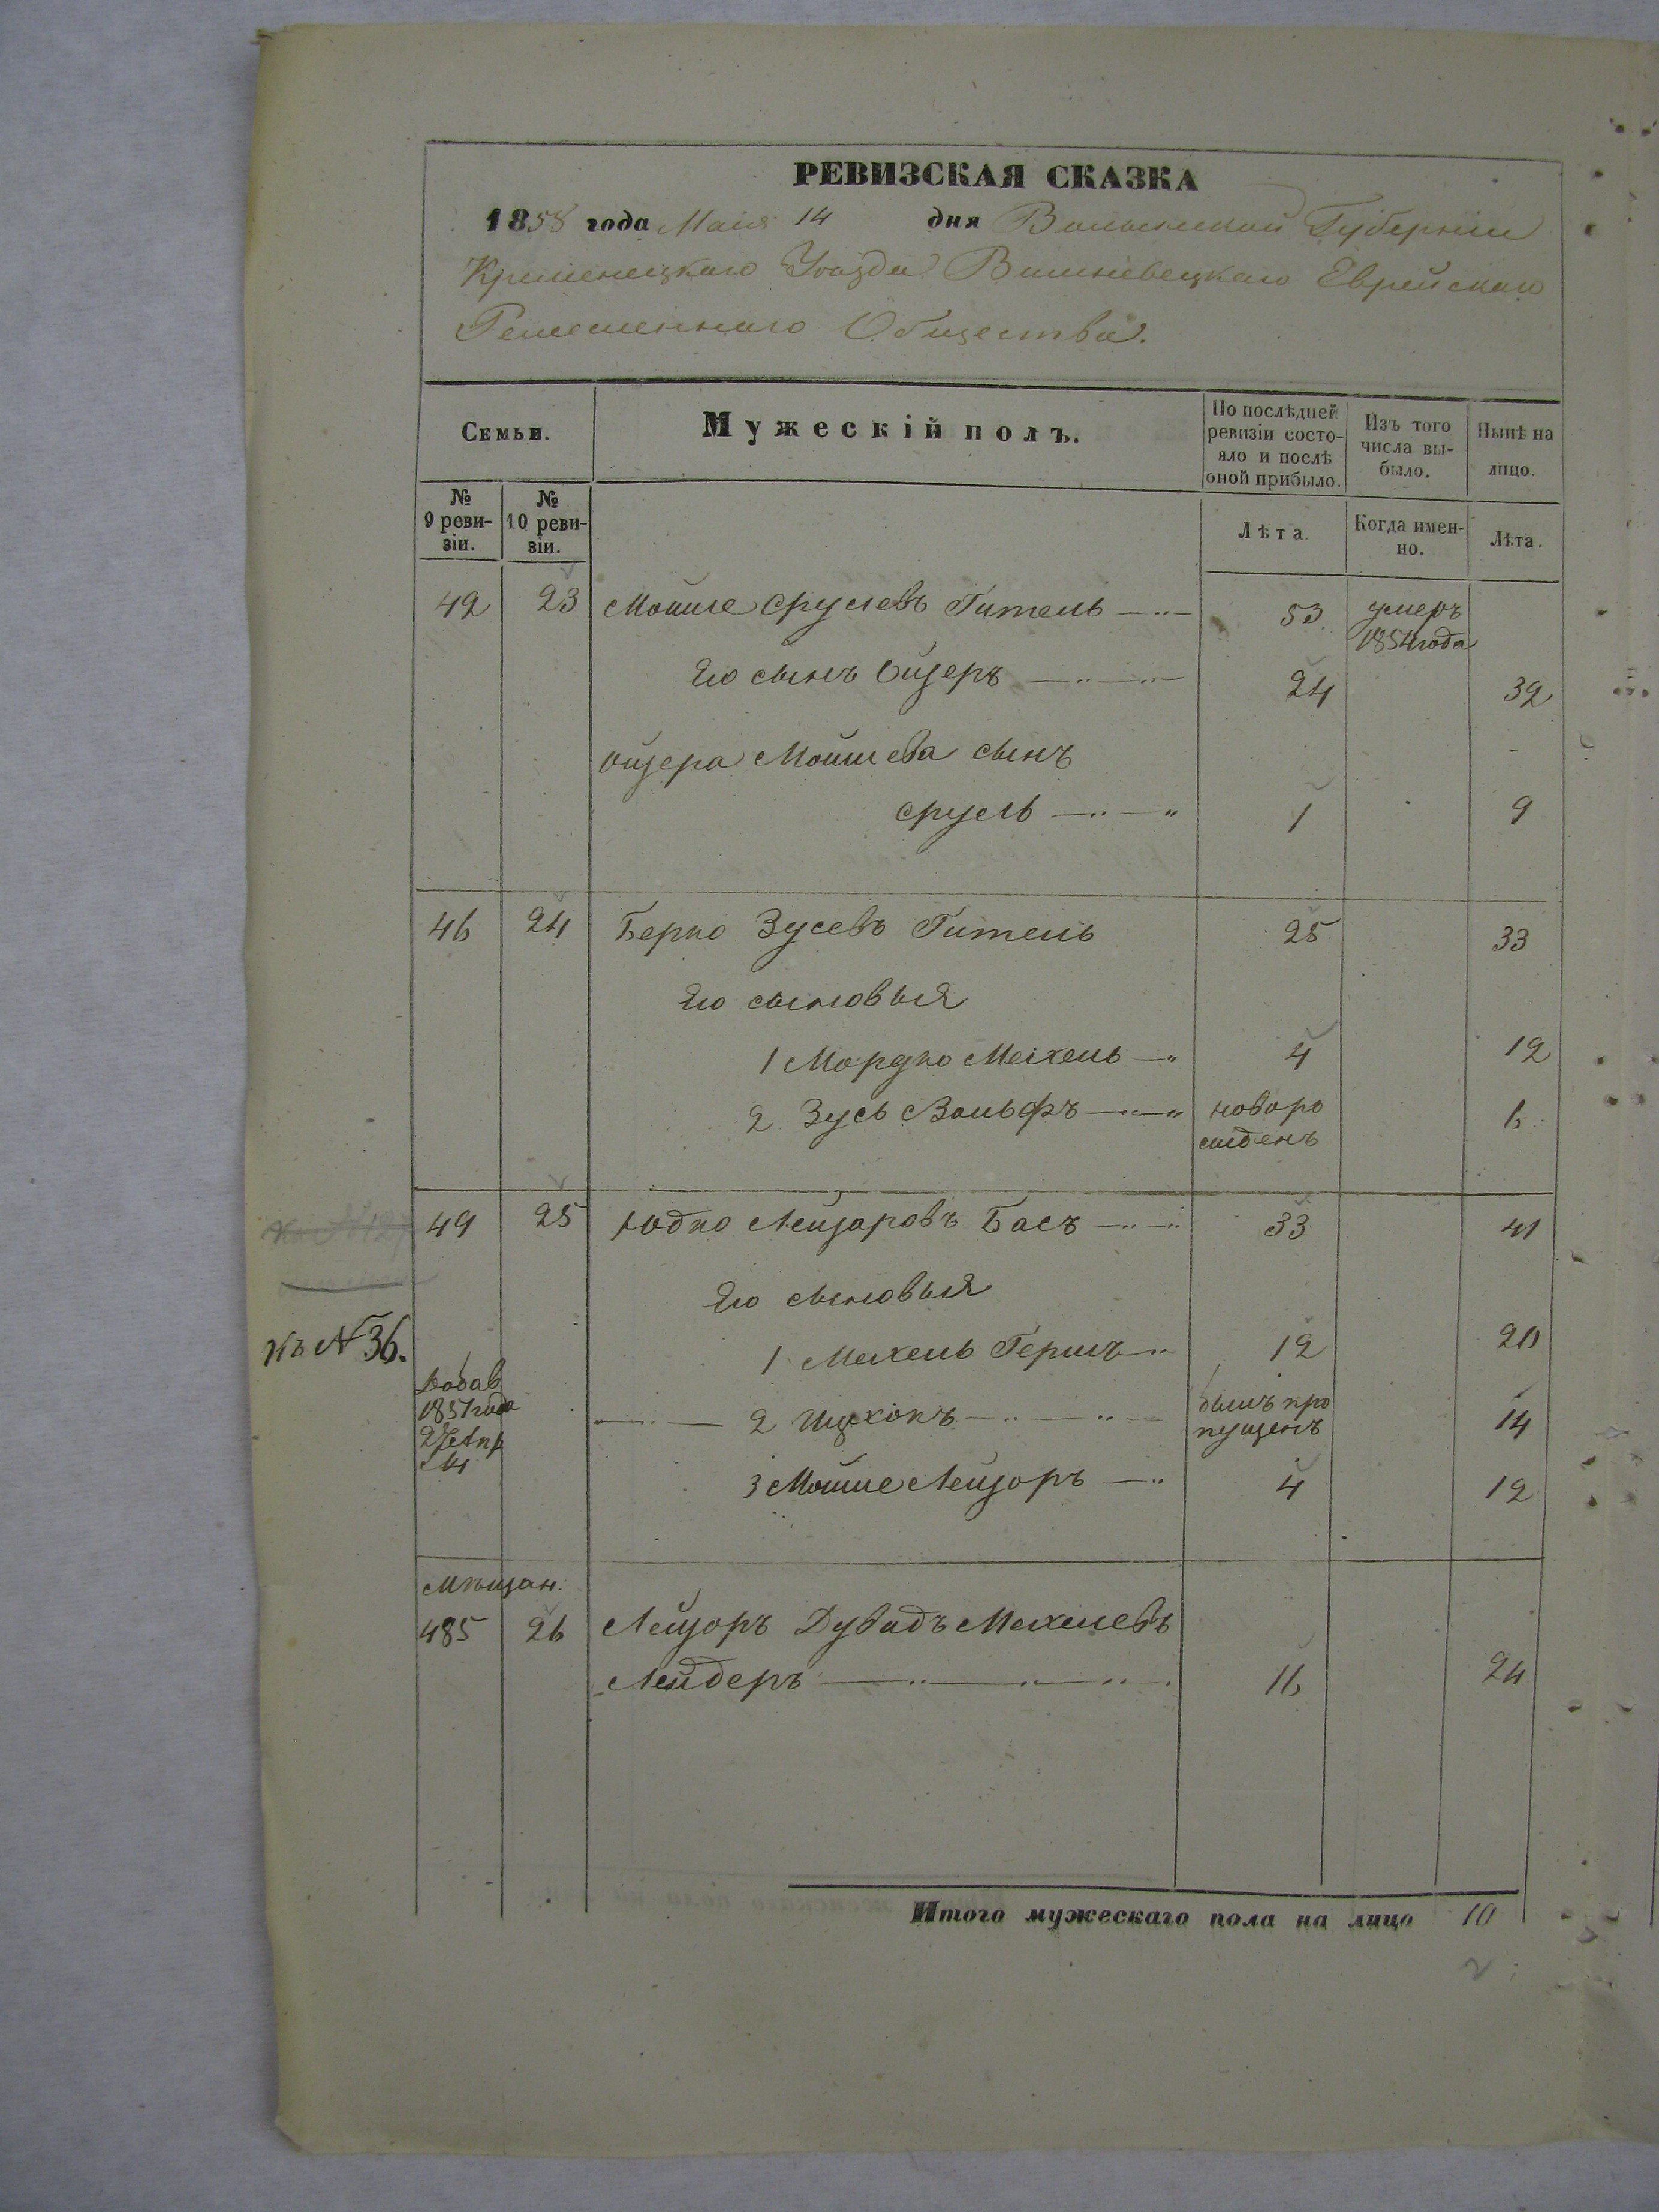 РЕВИЗСКАЯ СКАЗКА
1858 года Маія 14 дня Волынской Губерніи
Кременецкаго Уѣзда Вишневецкаго Еврейскаго
Ремесленнаго Общества.
Семьи.
Мужескій полъ.
По послѣдней
ревизіи состо-
яло и послѣ
оной прибыло.
Изъ того
числа вы-
было.
Нынѣ на
лицо.
№
9 реви-
зіи.
№
10 реви-
зіи.
Лѣта.
Когда имен-
но.
Лѣта.
42 23 Мойше Срулевъ Гитель 53 умеръ
1854 года
Его сынъ Ойзеръ 24 32
Ойзера Мойшева сынъ
Сруль 1 9
46 24 Берко Зусевъ Гитель 25 33
Его сыновья
1 Мордко Мехель 4 12
2 Зусь Вольфъ новоро 6
жденъ
49 25 Юдко Лейзоровъ Басъ 33 41
Его сыновья
къ № 36.
1 Мехель Гершъ 12 20
Добав
1851 года
2 былъ про 14
пущенъ
3 Мойше Лейзоръ 4 12
Мѣщан.
485 26 Лейзоръ Дувидъ Мехелевъ
Лейдеръ 16 24
Итого мужескаго пола на лицо 10